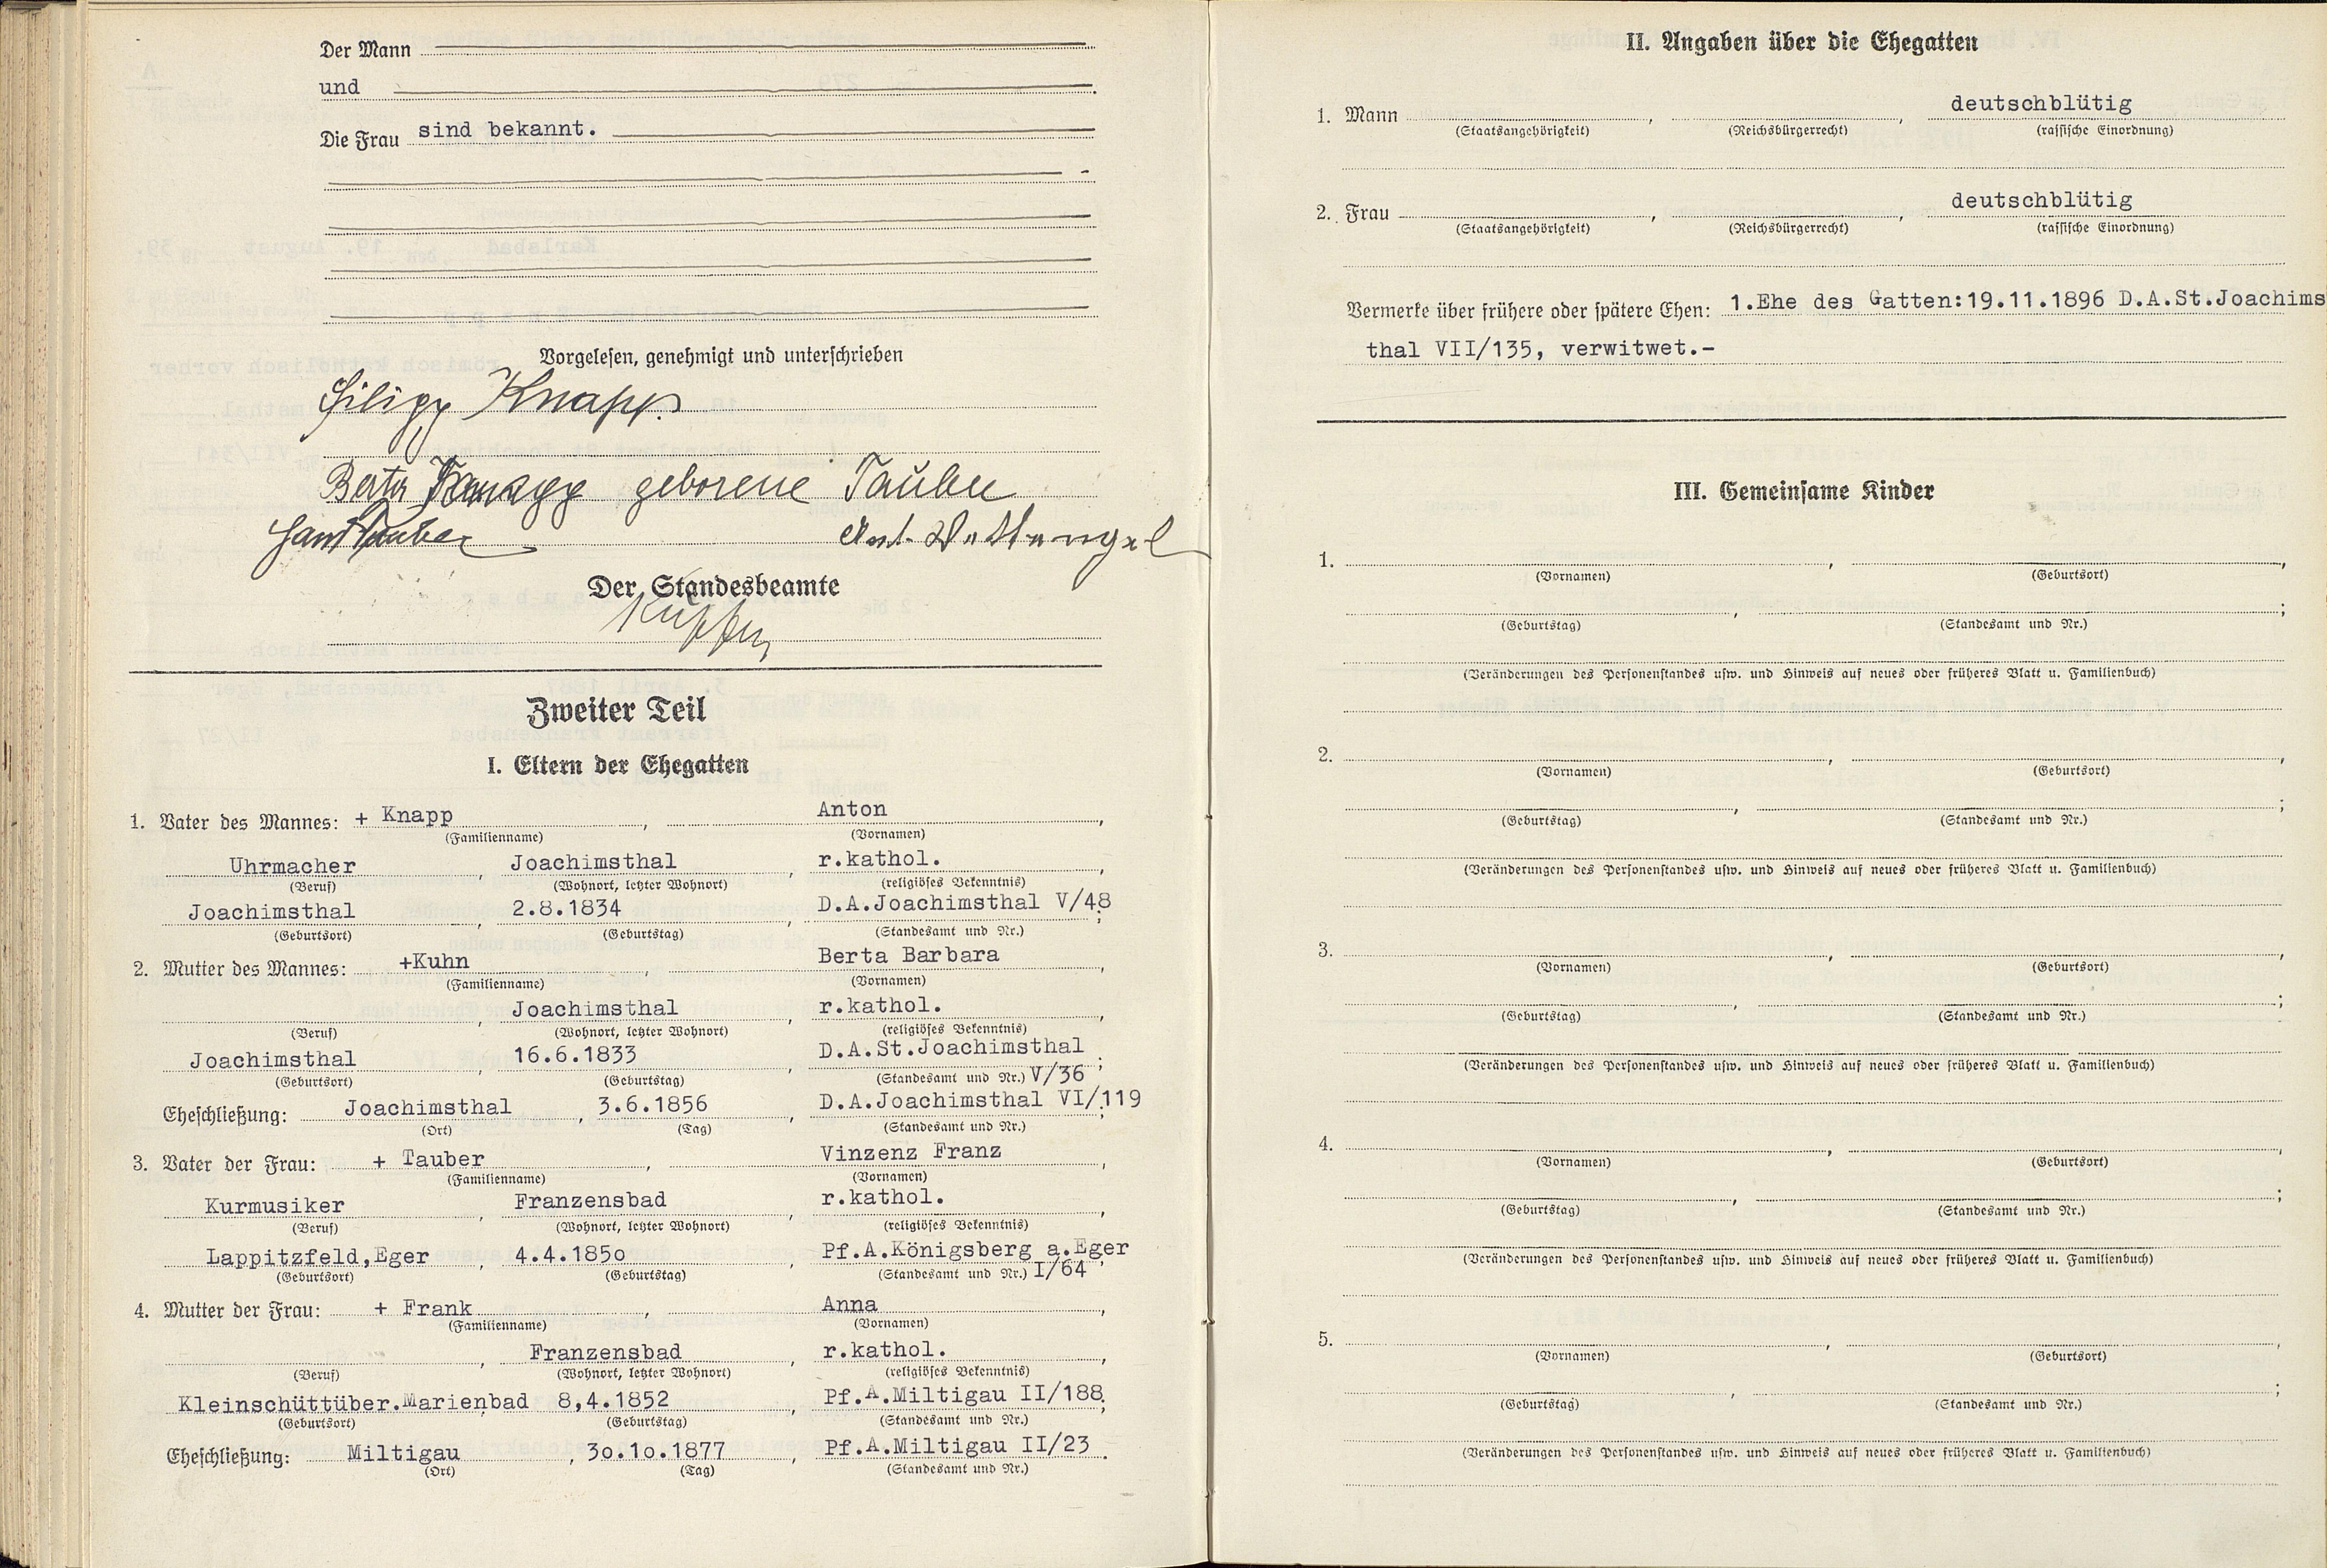 Der Mann
und
Die Frau sind bekannt.
Vorgelesen, genehmigt und unterschrieben
Knapp
Berta Knapp geborene Tauber
Hans Tauber Ant. Wettengel
Der Standesbeamte
Zweiter Teil
I. Eltern der Ehegatten
1. Vater des Mannes: + Knapp, Anton,
(Familienname) (Vornamen)
Uhrmacher, Joachimsthal, r.kathol.,
(Beruf) (Wohnort, letzter Wohnort) (religiöses Bekenntnis)
Joachimsthal, 2.8.1834, D.A.Joachimsthal V/48;
(Geburtsort) (Geburtstag) (Standesamt und Nr.)
2. Mutter des Mannes: +Kuhn, Berta Barbara,
(Familienname) (Vornamen)
, Joachimsthal, r.kathol.,
(Beruf) (Wohnort, letzter Wohnort) (religiöses Bekenntnis)
Joachimsthal, 16.6.1833, D.A.St.Joachimsthal;
(Geburtsort) (Geburtstag) (Standesamt und Nr.) V/36
Eheschließung: Joachimsthal, 3.6.1856, D.A.Joachimsthal VI/119;
(Ort) (Tag) (Standesamt und Nr.)
3. Vater der Frau: + Tauber, Vinzenz Franz,
(Familienname) (Vornamen)
Kurmusiker, Franzensbad, r.kathol.,
(Beruf) (Wohnort, letzter Wohnort) (religiöses Bekenntnis)
Lappitzfeld,Eger, 4.4.185o, Pf.A.Königsberg a.Eger;
(Geburtsort) (Geburtstag) (Standesamt und Nr.) I/64
4. Mutter der Frau: + Frank, Anna,
(Familienname) (Vornamen)
, Franzensbad, r.kathol.,
(Beruf) (Wohnort, letzter Wohnort) (religiöses Bekenntnis)
Kleinschüttüber.Marienbad 8,4.1852, Pf.A.Miltigau II/188;
(Geburtsort) (Geburtstag) (Standesamt und Nr.)
Eheschließung: Miltigau, 3o.1o.1877, Pf.A.Miltigau II/23.
(Ort) (Tag) (Standesamt und Nr.)
II. Angaben über die Ehegatten
1. Mann , , deutschblütig
(Staatsangehörigkeit) (Reichsbürgerrecht) (rassische Einordnung)
2. Frau , , deutschblütig
(Staatsangehörigkeit) (Reichsbürgerrecht) (rassische Einordnung)
Vermerke über frühere oder spätere Ehen: 1.Ehe des Gatten:19.11.1896 D.A.St.Joachims
thal VII/135, verwitwet.-
III. Gemeinsame Kinder
1. , ,
(Vornamen) (Geburtsort)
, ;
(Geburtstag) (Standesamt und Nr.)
(Veränderungen des Personenstandes usw. und Hinweis auf neues oder früheres Blatt u. Familienbuch)
2. , ,
(Vornamen) (Geburtsort)
, ;
(Geburtstag) (Standesamt und Nr.)
(Veränderungen des Personenstandes usw. und Hinweis auf neues oder früheres Blatt u. Familienbuch)
3. , ,
(Vornamen) (Geburtsort)
, ;
(Geburtstag) (Standesamt und Nr.)
(Veränderungen des Personenstandes usw. und Hinweis auf neues oder früheres Blatt u. Familienbuch)
4. , ,
(Vornamen) (Geburtsort)
, ;
(Geburtstag) (Standesamt und Nr.)
(Veränderungen des Personenstandes usw. und Hinweis auf neues oder früheres Blatt u. Familienbuch)
5. , ,
(Vornamen) (Geburtsort)
, ;
(Geburtstag) (Standesamt und Nr.)
(Veränderungen des Personenstandes usw. und Hinweis auf neues oder früheres Blatt u. Familienbuch)